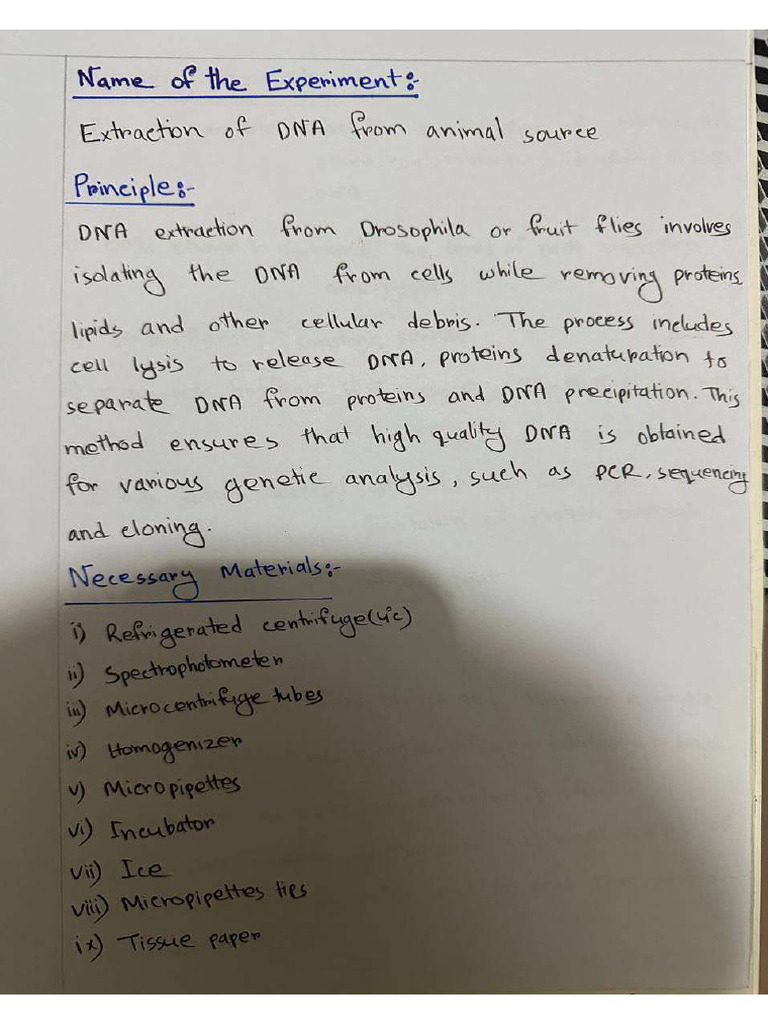 Name of the Experiment:-
Extraction of DNA from animal source
Principle:-
DNA extraction from Drosophila or fruit flies involves
isolating the DNA from cells while removing proteins,
lipids and other cellular debris. The process includes
cell lysis to release DNA, proteins denaturation to
separate DNA from proteins and DNA precipitation. This
method ensures that high quality DNA is obtained
for various genetic analysis, such as PCR, sequencing
and cloning.
Necessary Materials:-
i) Refrigerated centrifuge(4°c)
ii) Spectrophotometer
iii) Microcentrifuge tubes
iv) Homogenizer
v) Micropipettes
vi) Incubator
vii) Ice
viii) Micropipettes tips
ix) Tissue paper